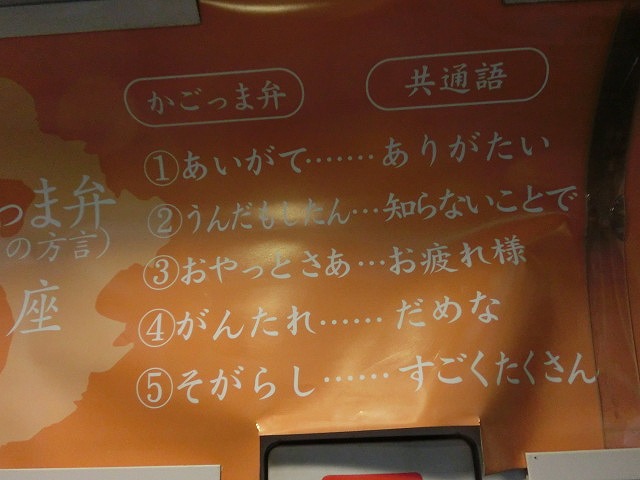 かごっま弁 共通語
①あいがて……ありがたい
②うんだもしたん…知らないことで
③おやっとさあ…お疲れ様
④がんたれ……だめな
⑤そがらし……すごくたくさん
っま弁
の方言）
座